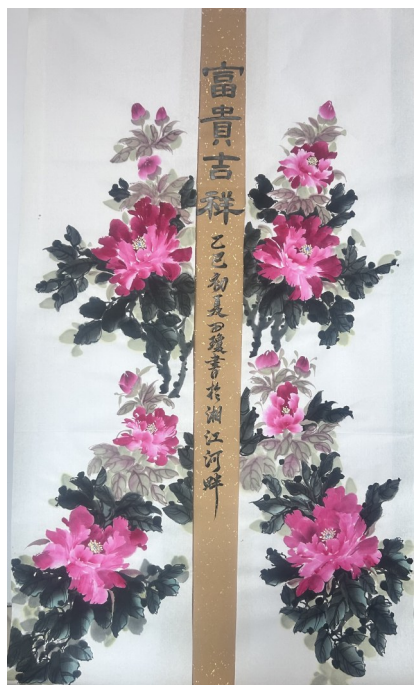 富貴吉祥
乙巳初夏田瓊書於湘江河畔